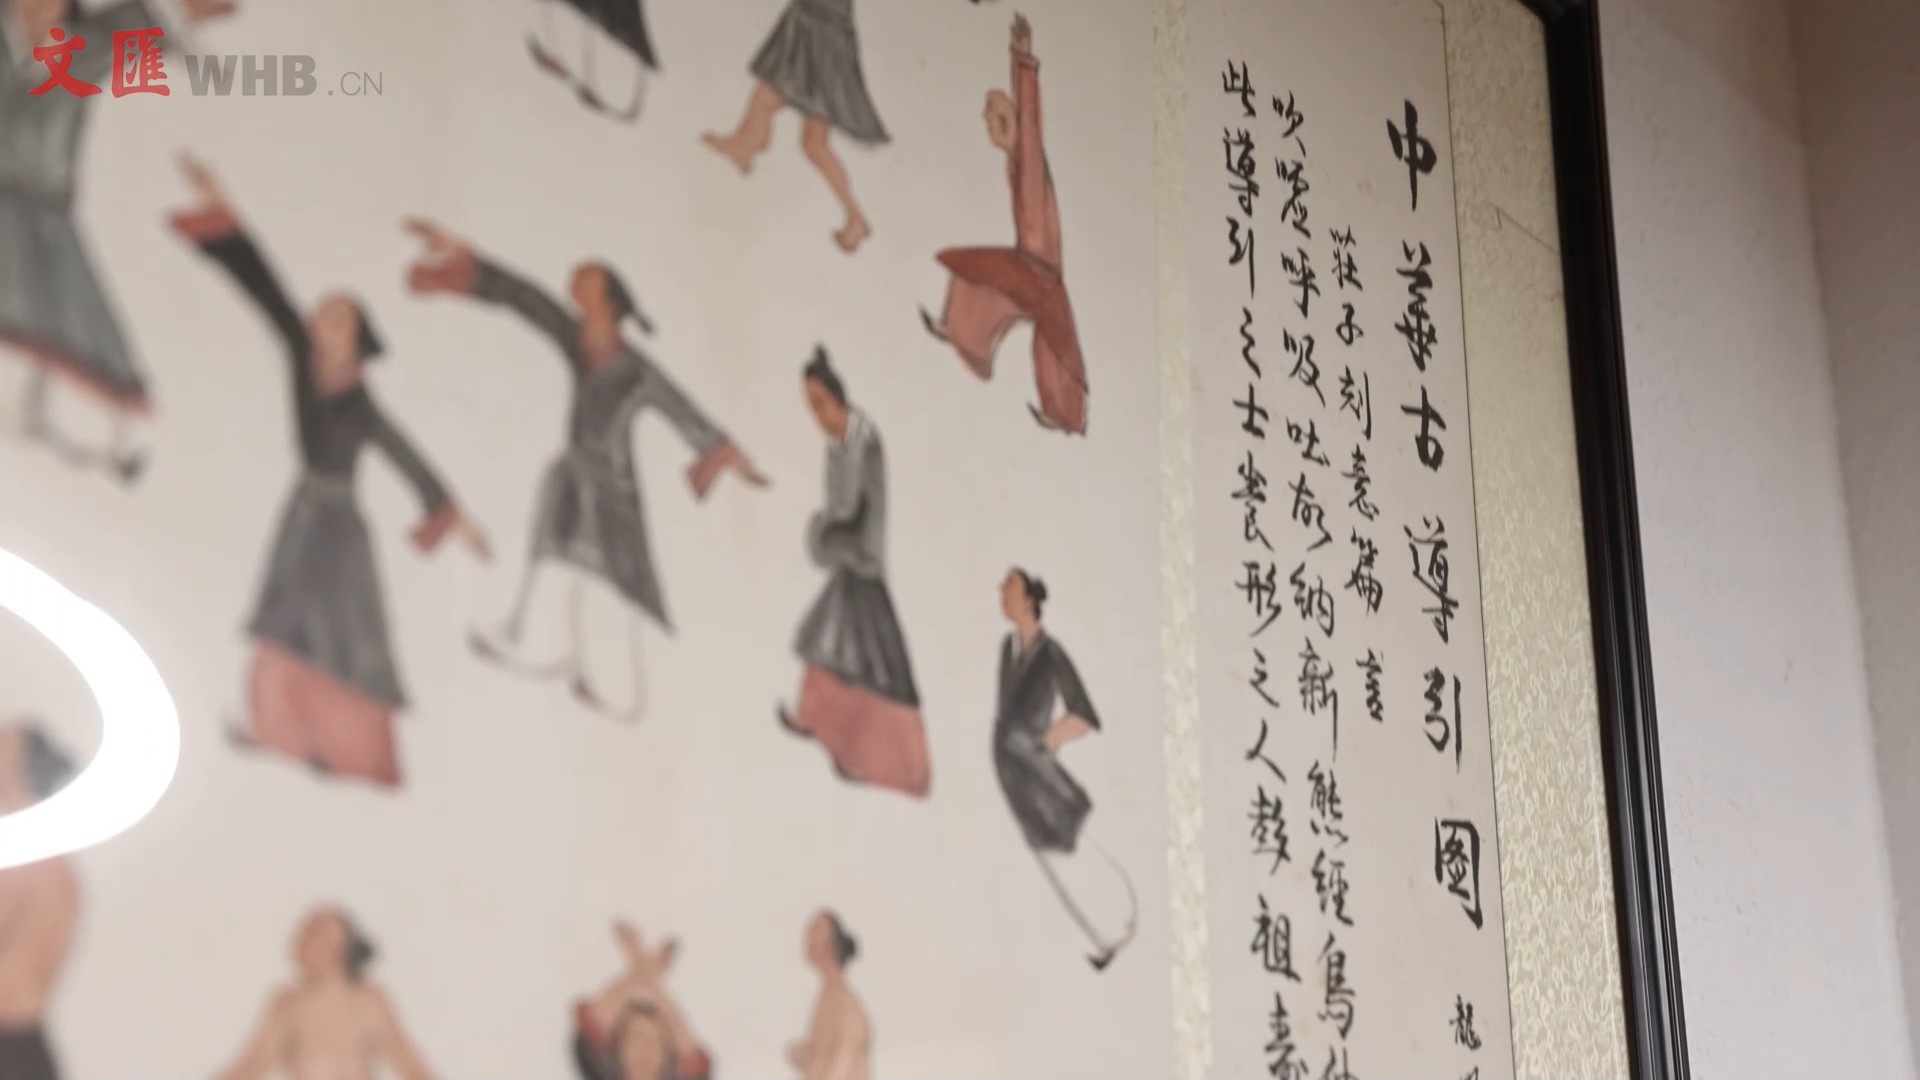 文匯 WHB.CN
中華古導引圖
龍
莊子刻意篇言
吹噓呼吸吐故納新熊經鳥
此導引之士養形之人彭祖壽